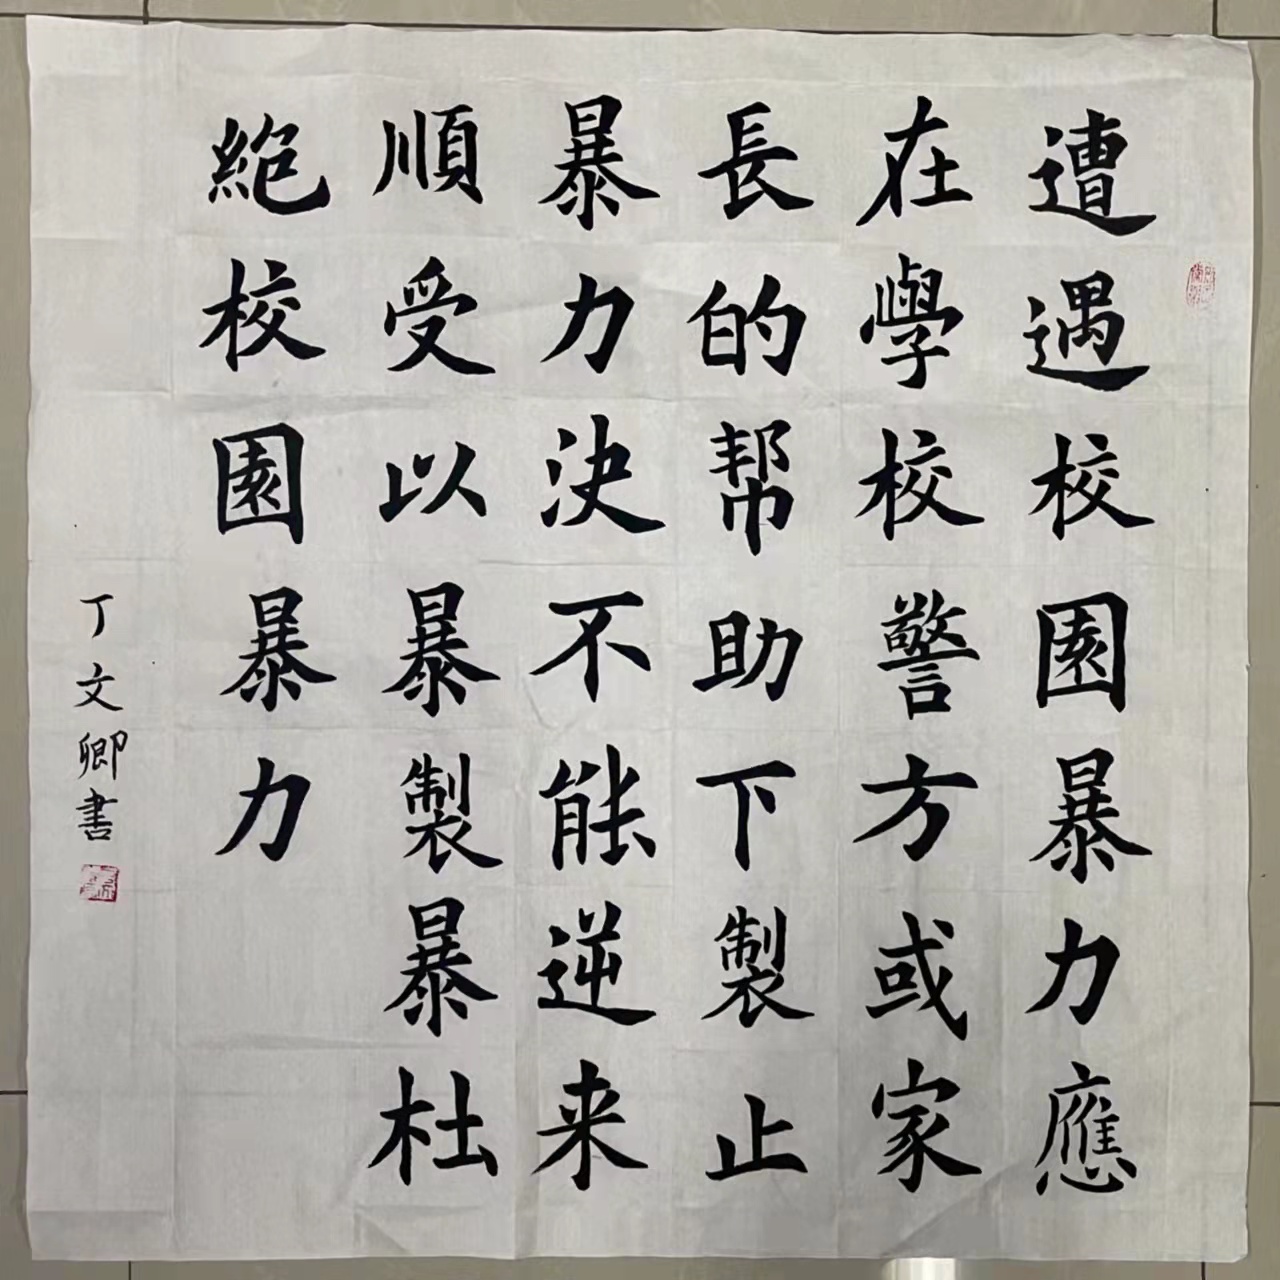 遭遇校園暴力應
在學校警方或家
長的帮助下製止
暴力決不能逆来
順受以暴製暴杜
絕校園暴力
丁文卿書